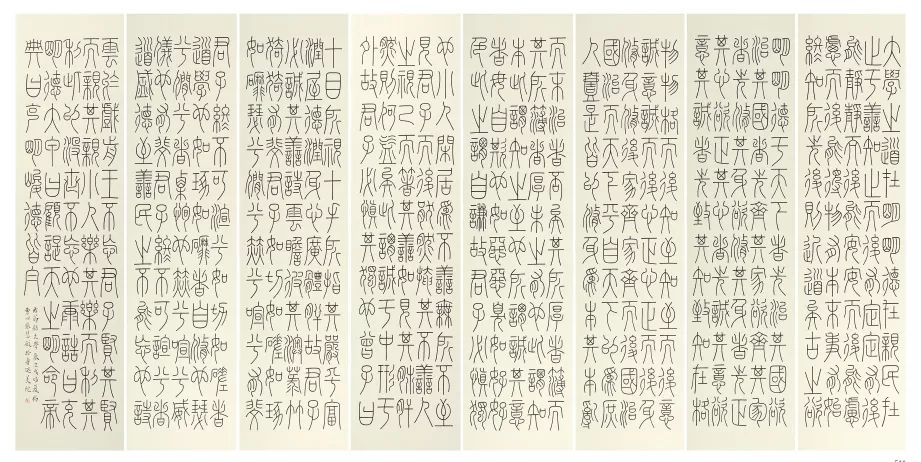 大學之道在明明德在親民在
止于至善知止而后有定定而后
能靜靜而后能安安而后能慮
慮而后能得物有本末事有終
始知所先後則近道矣古之欲
明明德于天下者先治其國欲
治其國者先齊其家欲齊其家
者先修其身欲修其身者先正
其心欲正其心者先誠其意欲
誠其意者先致其知致知在格
物物格而后知至知至而后意
誠意誠而后心正心正而后身
修身修而后家齊家齊而后國
治國治而后天下平自天子以至於庶
人壹是皆以修身為本其本亂
而末治者否矣其所厚者薄而
其所薄者厚未之有也此謂知
本此謂知之至也所謂誠其意
者毋自欺也如惡惡臭如好好
色此之謂自謙故君子必慎其獨
也小人閒居為不善無所不至
見君子而后厭然揜其不善而
著其善人之視己如見其肺肝
然則何益矣此謂誠于中形于
外故君子必慎其獨也曾子曰
十目所視十手所指其嚴乎富
潤屋德潤身心廣體胖故君子
必誠其意詩云瞻彼淇澳菉竹
猗猗有斐君子如切如磋如琢
如磨瑟兮僩兮赫兮喧兮有斐
君子終不可諠兮如切如磋者
道學也如琢如磨者自修也瑟
兮僩兮者恂慄也赫兮喧兮者威
儀也有斐君子終不可諠兮者
道盛德至善民之不能忘也詩
云於戲前王不忘君子賢其賢
而親其親小人樂其樂而利其
利此以沒世不忘也康誥曰克
明德大甲曰顧諟天之明命帝
典曰克明峻德皆自明也